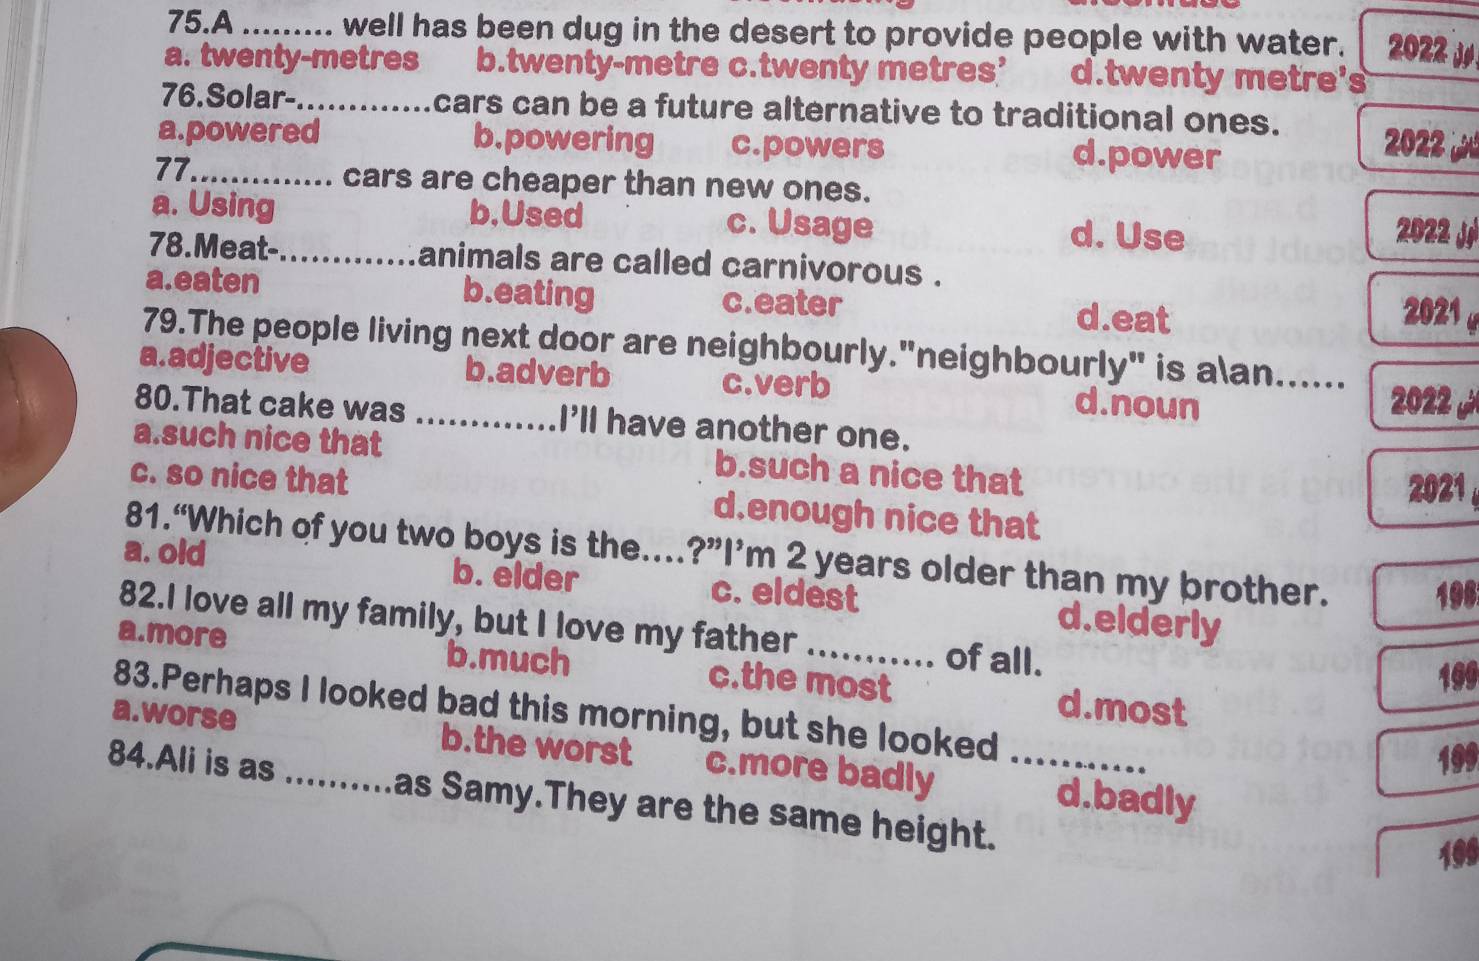 75.A ......... well has been dug in the desert to provide people with water. 2022
a. twenty-metres b.twenty-metre c.twenty metres' d.twenty metre's
76.Solar-.............cars can be a future alternative to traditional ones.
a.powered b.powering c.powers d.power 2022
77.............. cars are cheaper than new ones.
a. Using b.Used c. Usage d. Use 2022
78.Meat-.............animals are called carnivorous .
a.eaten b.eating c.eater d.eat 2021
79.The people living next door are neighbourly."neighbourly" is a\an......
a.adjective b.adverb c.verb d.noun 2022
80.That cake was .............I'll have another one.
a.such nice that b.such a nice that 2021
c. so nice that d.enough nice that
81.“Which of you two boys is the....?”I'm 2 years older than my brother.
a. old b. elder c. eldest d.elderly 198
82.I love all my family, but I love my father ............ of all.
a.more b.much c.the most d.most 199
83.Perhaps I looked bad this morning, but she looked ............
a.worse b.the worst c.more badly d.badly 199
84.Ali is as ..........as Samy.They are the same height.
199